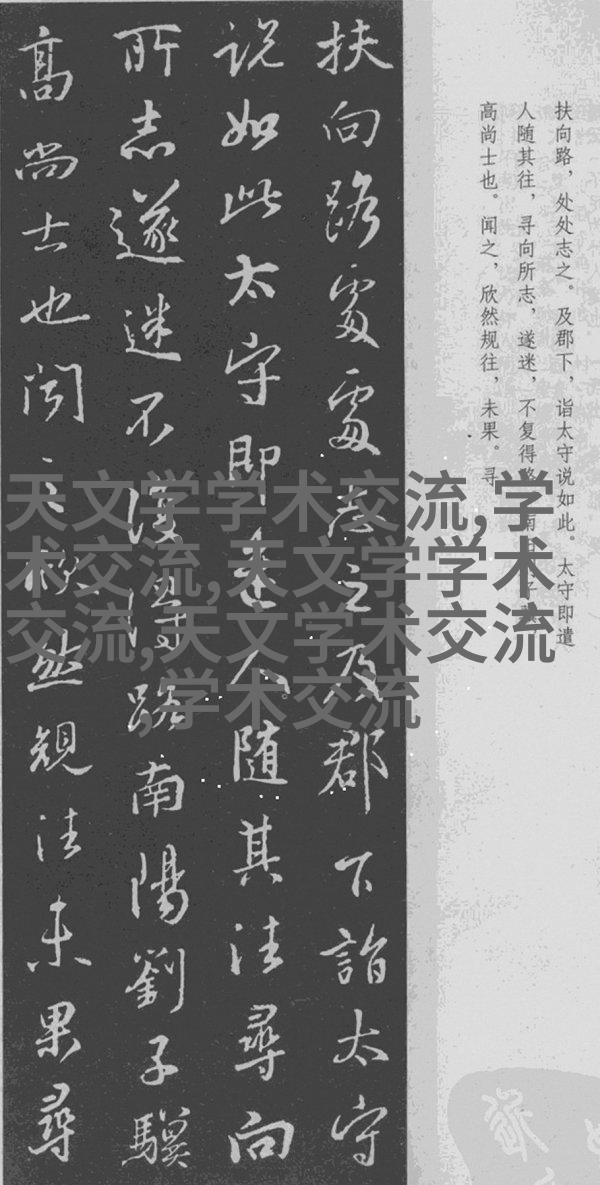 扶向路，处处志之。及郡下，诣太守说如此。太守即遣
人随其往，寻向所志，遂迷，不复得路 南 子
高尚士也。闻之，欣然规往，未果。寻
扶向路處處志之及郡下詣太守
説如此太守即遣人随其往尋向
所志遂迷不復得路南陽劉子驥
高尚士也聞之欣然規往未果尋
天文学学术交流,学
术交流,天文学学术
交流,天文学术交流
,学术交流